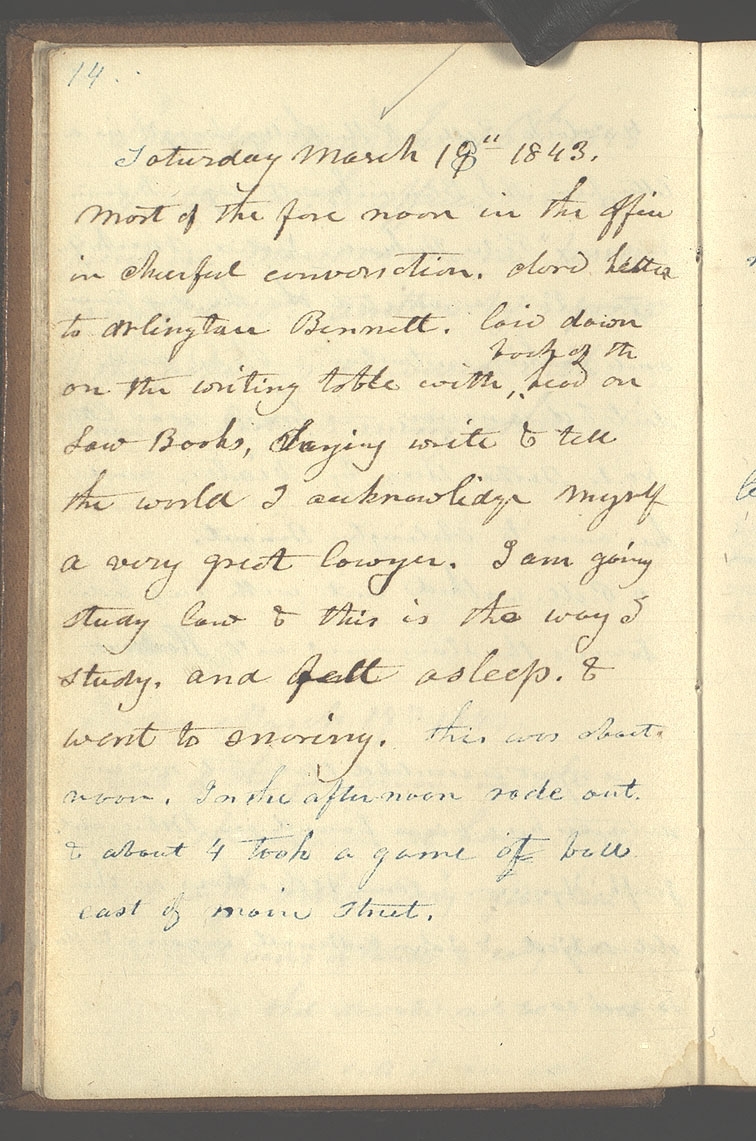 14.
Saturday March 18" 1843.
Most of the fore noon in the office
in cheerful conversation.
to Arlington Bennett. laid down
back of the
on the writing table with, head on
Law Books, saying write & tell
the world I acknowlidge myself
a very great lawyer. I am going
study law & this is the way I
study. and fell asleep. &
went to snoring. this was about
noon. In the afternoon rode out.
& about 4 took a game of ball
east of main Street.